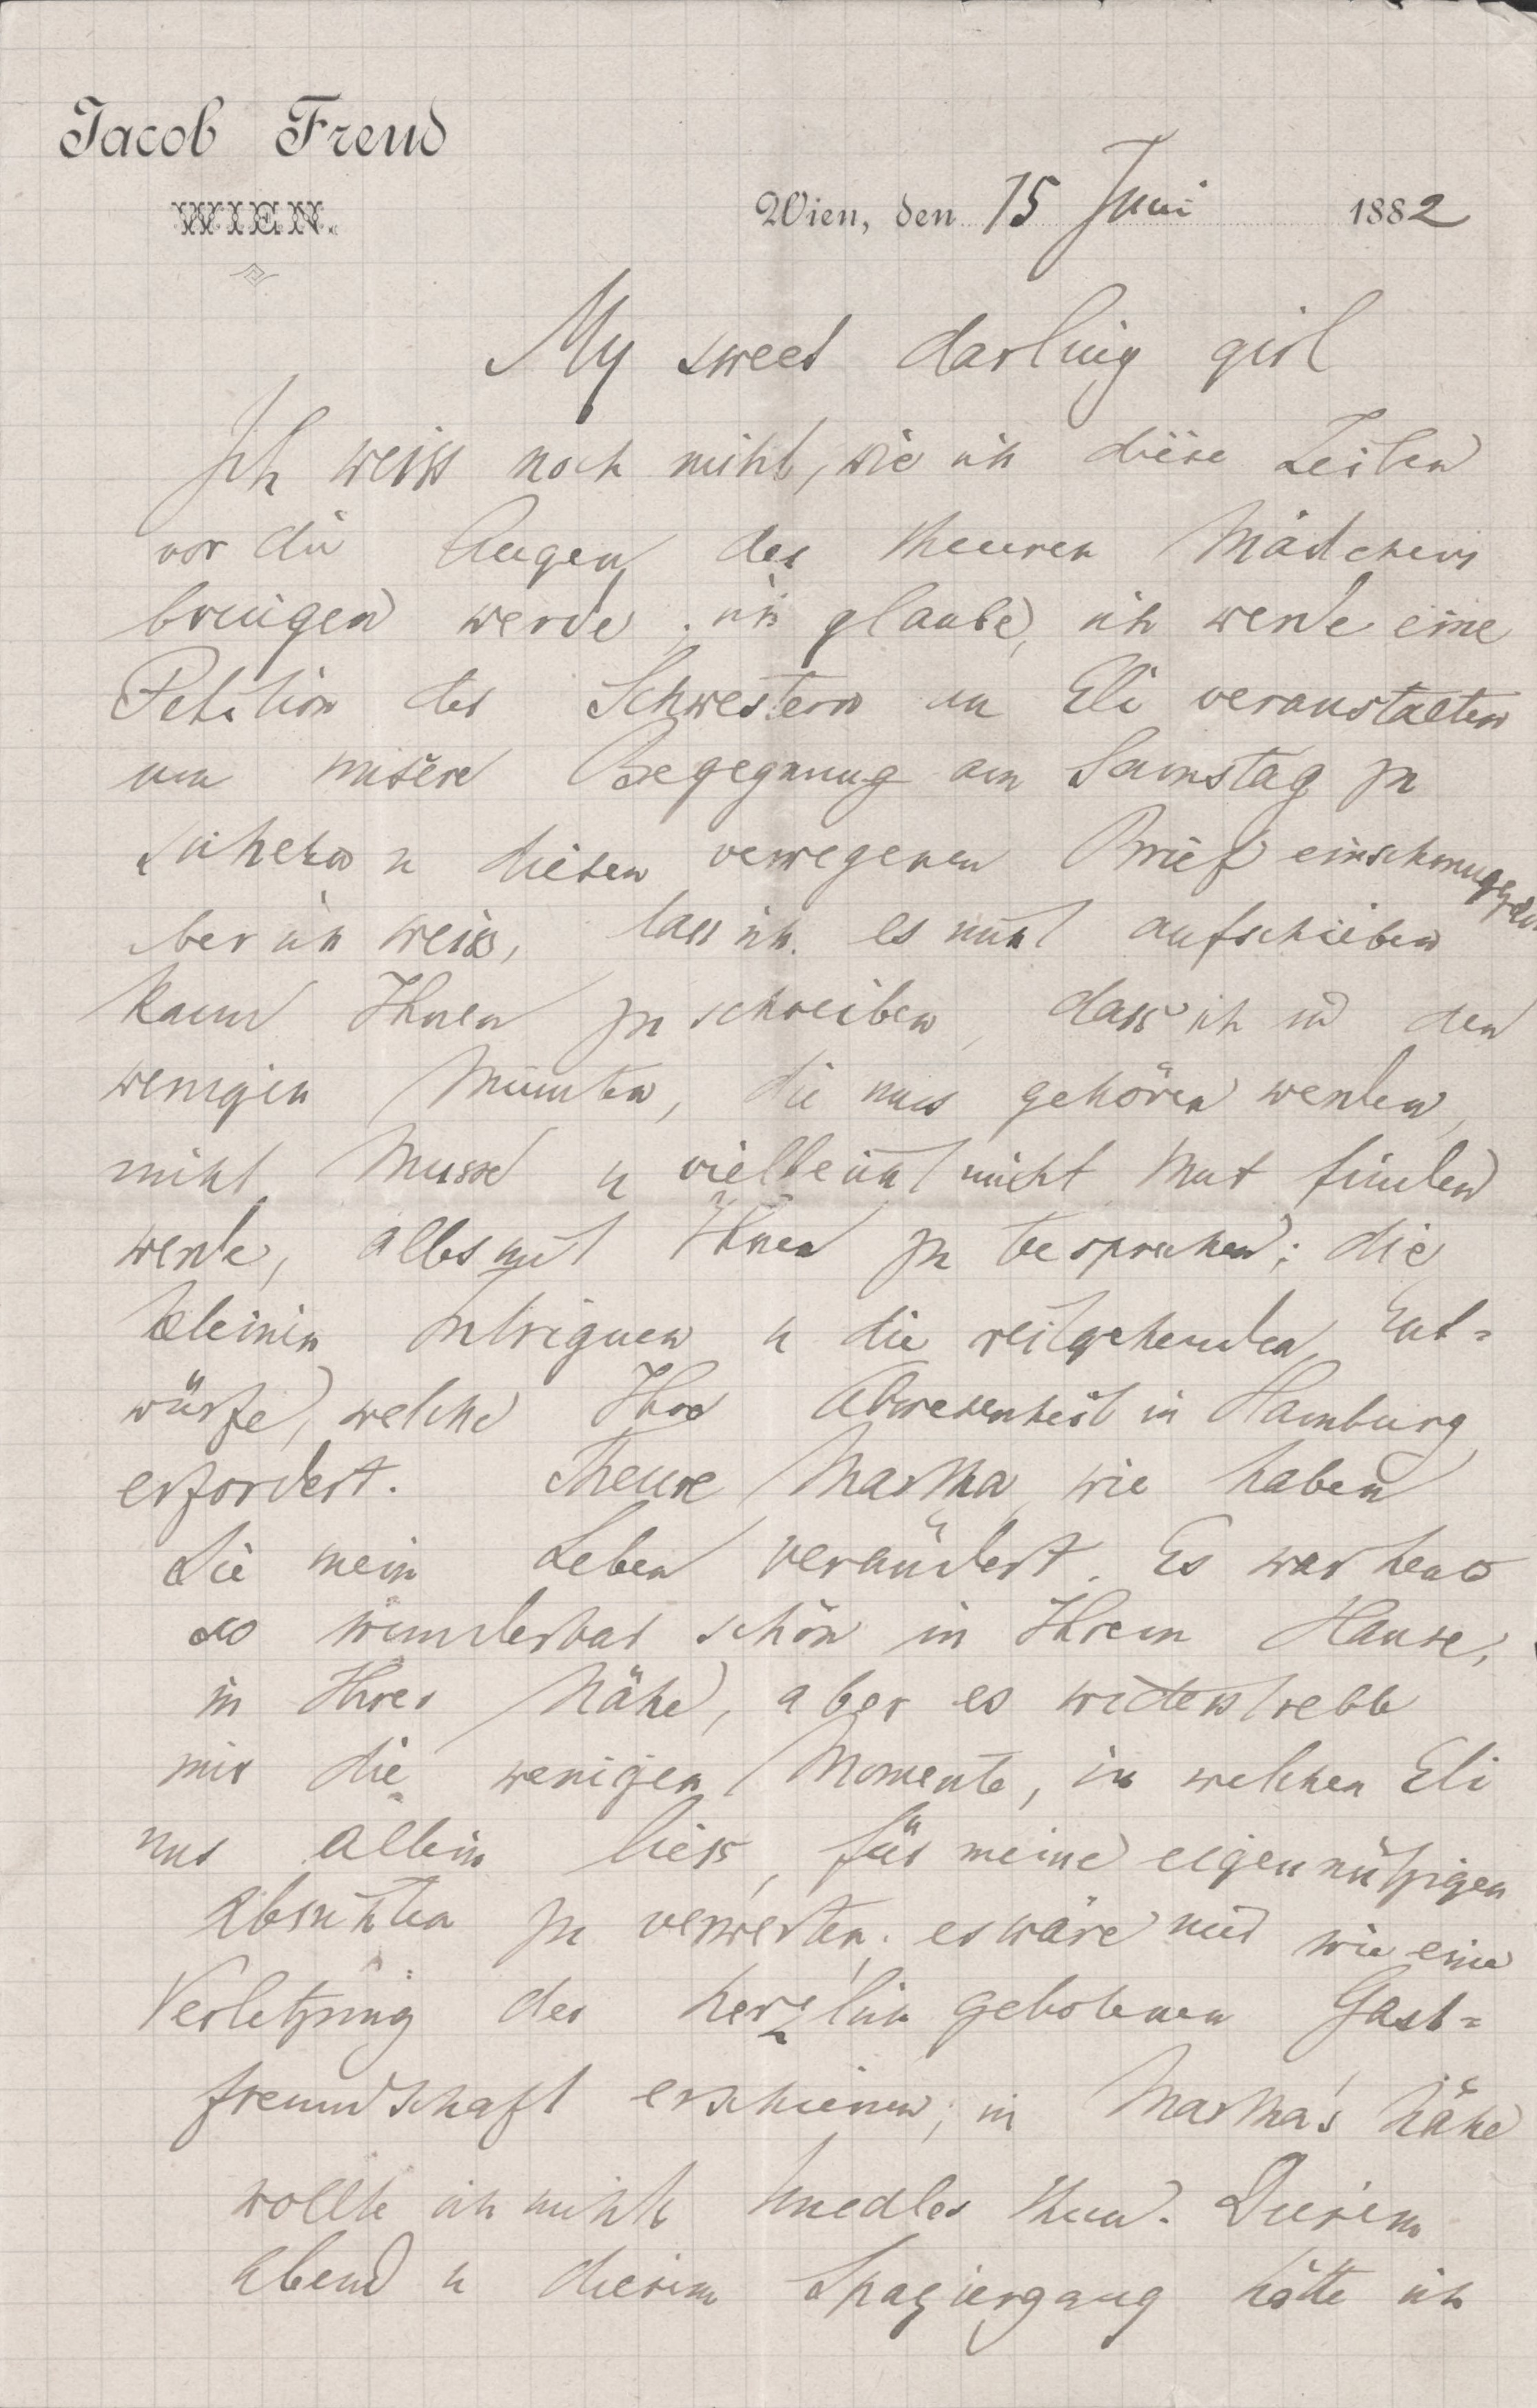 Jacob Freud
WIEN.
Wien, den 15 Juni 1882
My sweet darling girl
Ich weiss noch nicht, wie ich diese Zeilen
vor die Augen des theuren Mädchens
bringen werde. ich glaube, ich werde eine
Petition der Schwestern an Eli veranstalten
um unsere Begegnung am Samstag zu
sichern u diesen verwegenen Brief einschmuggeln
ber ich weiss, dass ich es nicht aufschieben
kann Ihnen zu schreiben, dass ich in den
wenigen Minuten, die uns gehören werden,
nicht Musse u vielleicht nicht Mut finden
werde, alles mit Ihnen zu besprechen; die
kleinen Intriguen u die weitgehenden Ent=
würfe, welche Ihre Abwesenheit in Hamburg
erfordert. Theure Martha, wie haben
Sie mein Leben verändert. Es war heute
so wunderbar schön in Ihrem Hause,
in Ihrer Nähe, aber es widerstrebte
mir die wenigen Momente, in welchen Eli
uns allein liess, für meine eigennützigen
Absichten zu verwerten. es wäre mir wie eine
Verletzung der herzlich gebotenen Gast=
freundschaft erschienen; in Martha's Nähe
wollte ich nichts Unedles thun. Diesem
Abend u diesem Spaziergang hätte ich